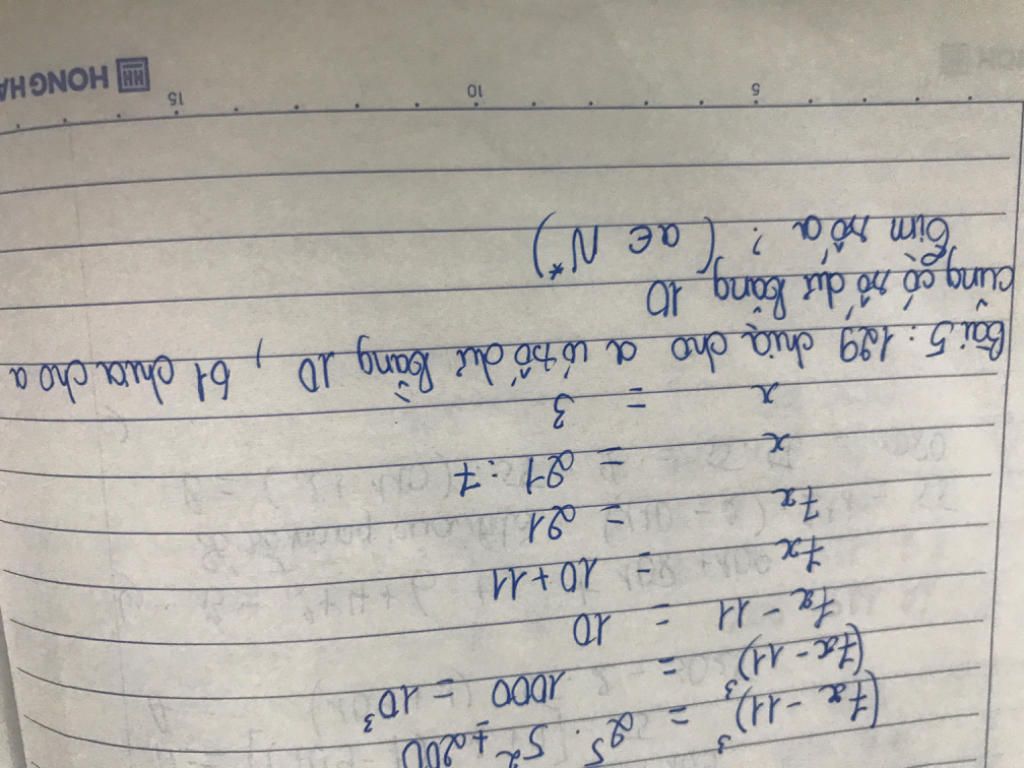 (7x - 11)³ = 2⁵ . 5² + 200
(7x - 11)³ = 1000 = 10³
7x - 11 = 10
7x = 10 + 11
7x = 21
x = 21 : 7
x = 3
Bài 5 : 129 chia cho a có số dư bằng 10 , 61 chia cho a
cũng có số dư bằng 10
Tìm số a ? ( a ∈ N* )
5 10 15
HONG HA